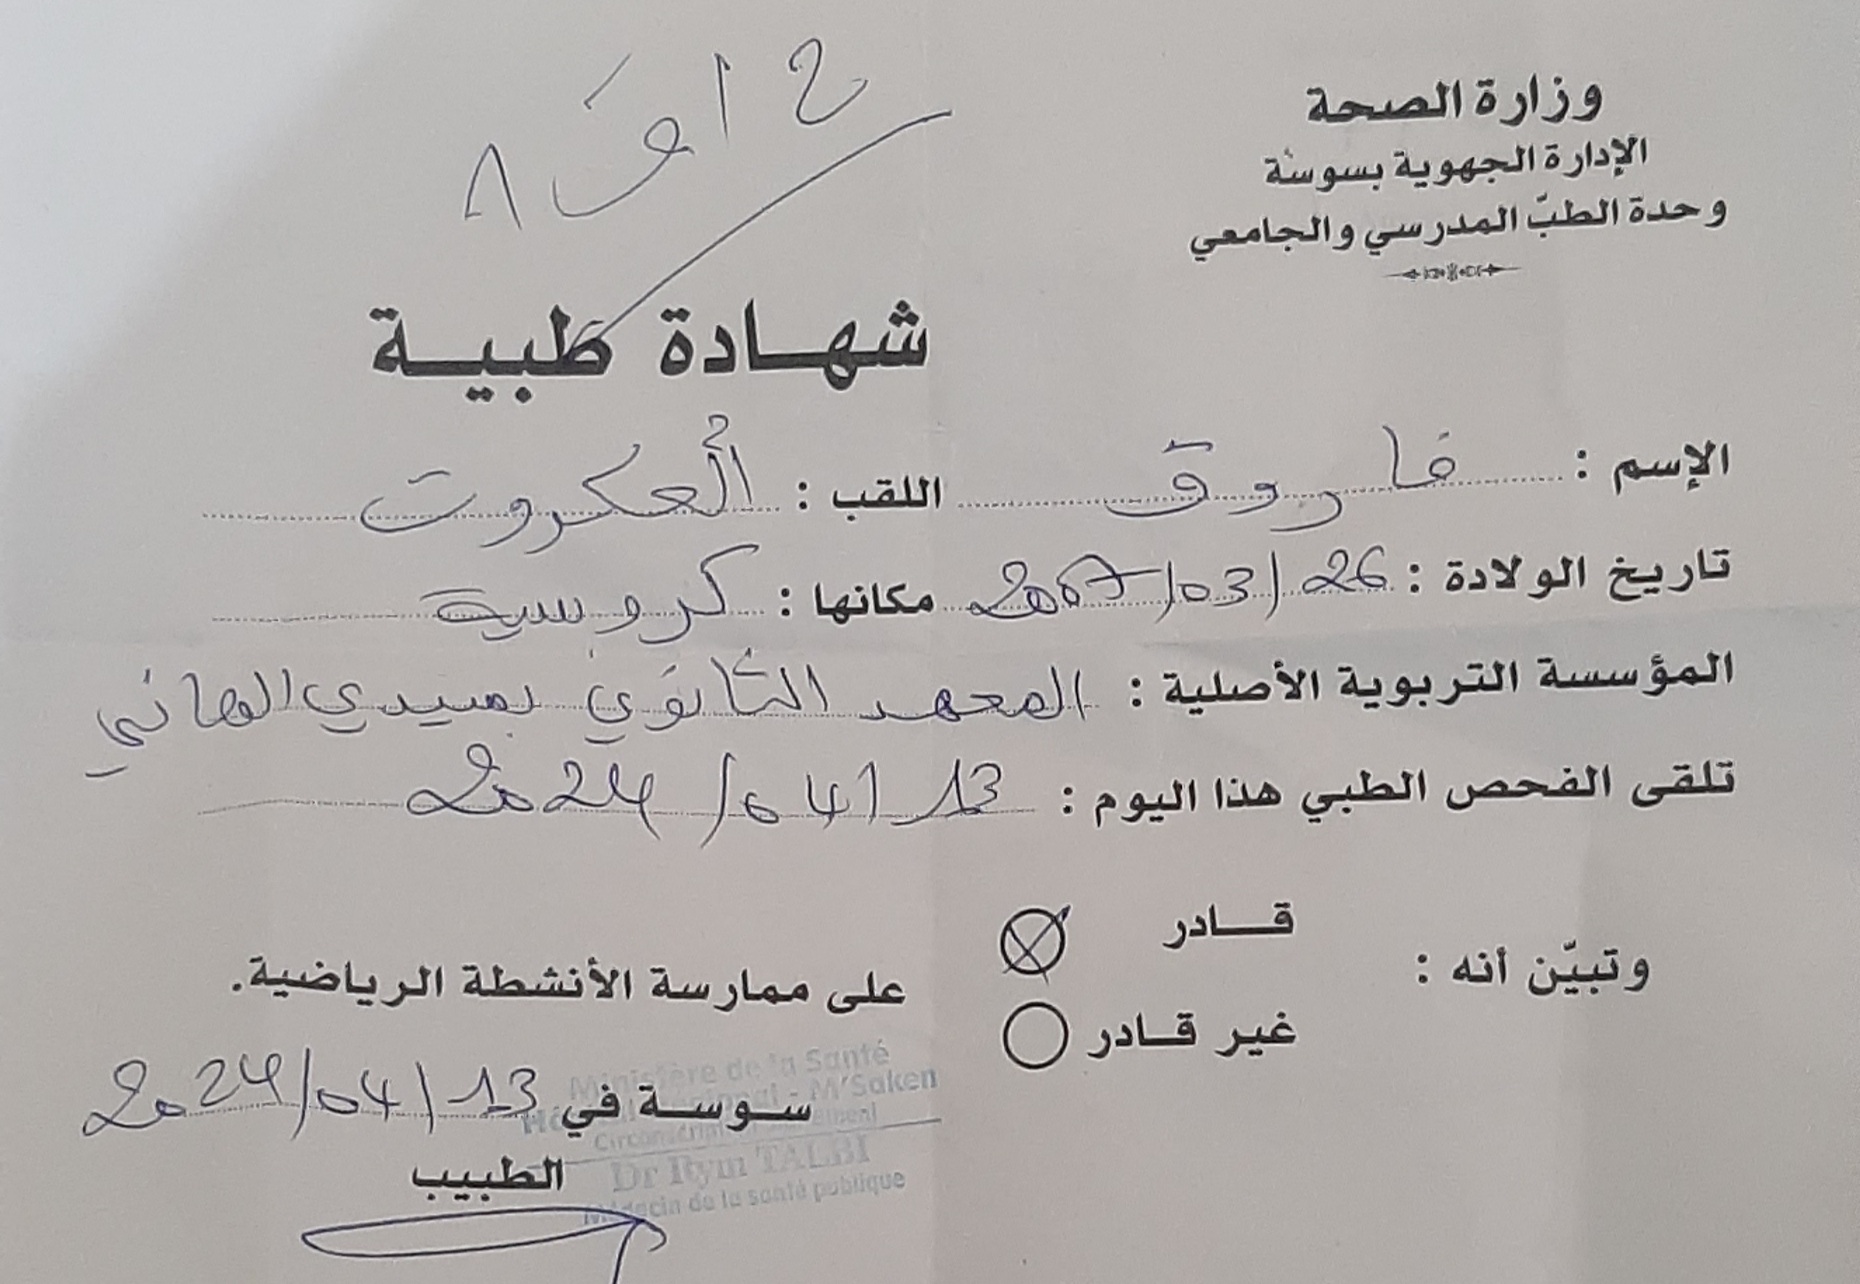 وزارة الصحة
الإدارة الجهوية بسوسة
وحدة الطبّ المدرسي والجامعي
شهادة طبية
الإسم : فاروق اللقب : العكروت
تاريخ الولادة : 26/03/2007 مكانها : كروسية
المؤسسة التربوية الأصلية : المعهد الثانوي بسيدي الهاني
تلقى الفحص الطبي هذا اليوم : 13/04/2024
وتبيّن أنه :
قادر
غير قادر
على ممارسة الأنشطة الرياضية.
سوسة في 13/04/2024
الطبيب
Ministère de la Santé
Hôpital Régional - M'Saken
Dr Rym TALBI
Médecin de la santé publique